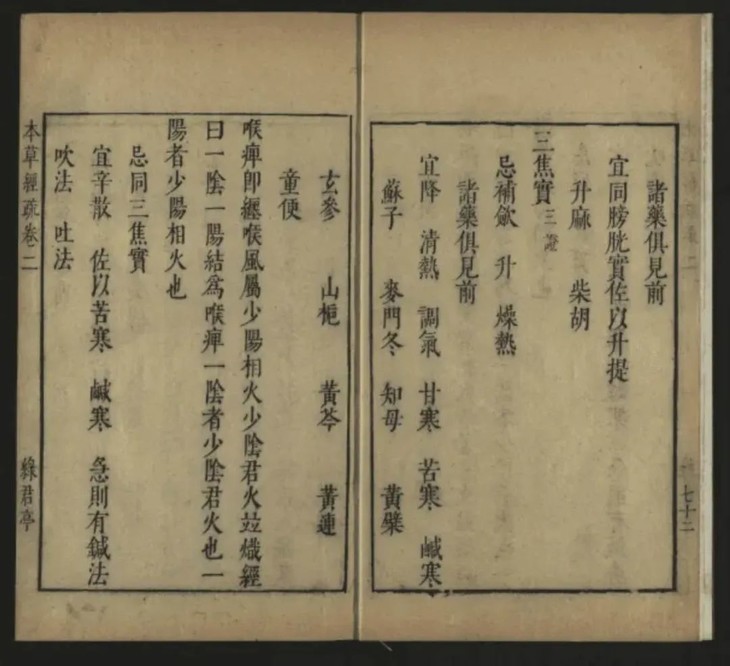 諸藥俱見前
宜同膀胱實佐以升提
升麻 柴胡
三焦實三證
忌補歛 升 燥熱
諸藥俱見前
宜降 清熱 調氣 甘寒 苦寒 鹹寒
蘇子 麥門冬 知母 黃蘗
七十二
玄參 山梔 黃芩 黃連
童便
喉痺即纏喉風屬少陽相火少陰君火竝熾經
曰一陰一陽結爲喉痺一陰者少陰君火也一
陽者少陽相火也
忌同三焦實
宜辛散 佐以苦寒 鹹寒 急則有鍼法
吹法 吐法
本草經疏卷二
綠君亭